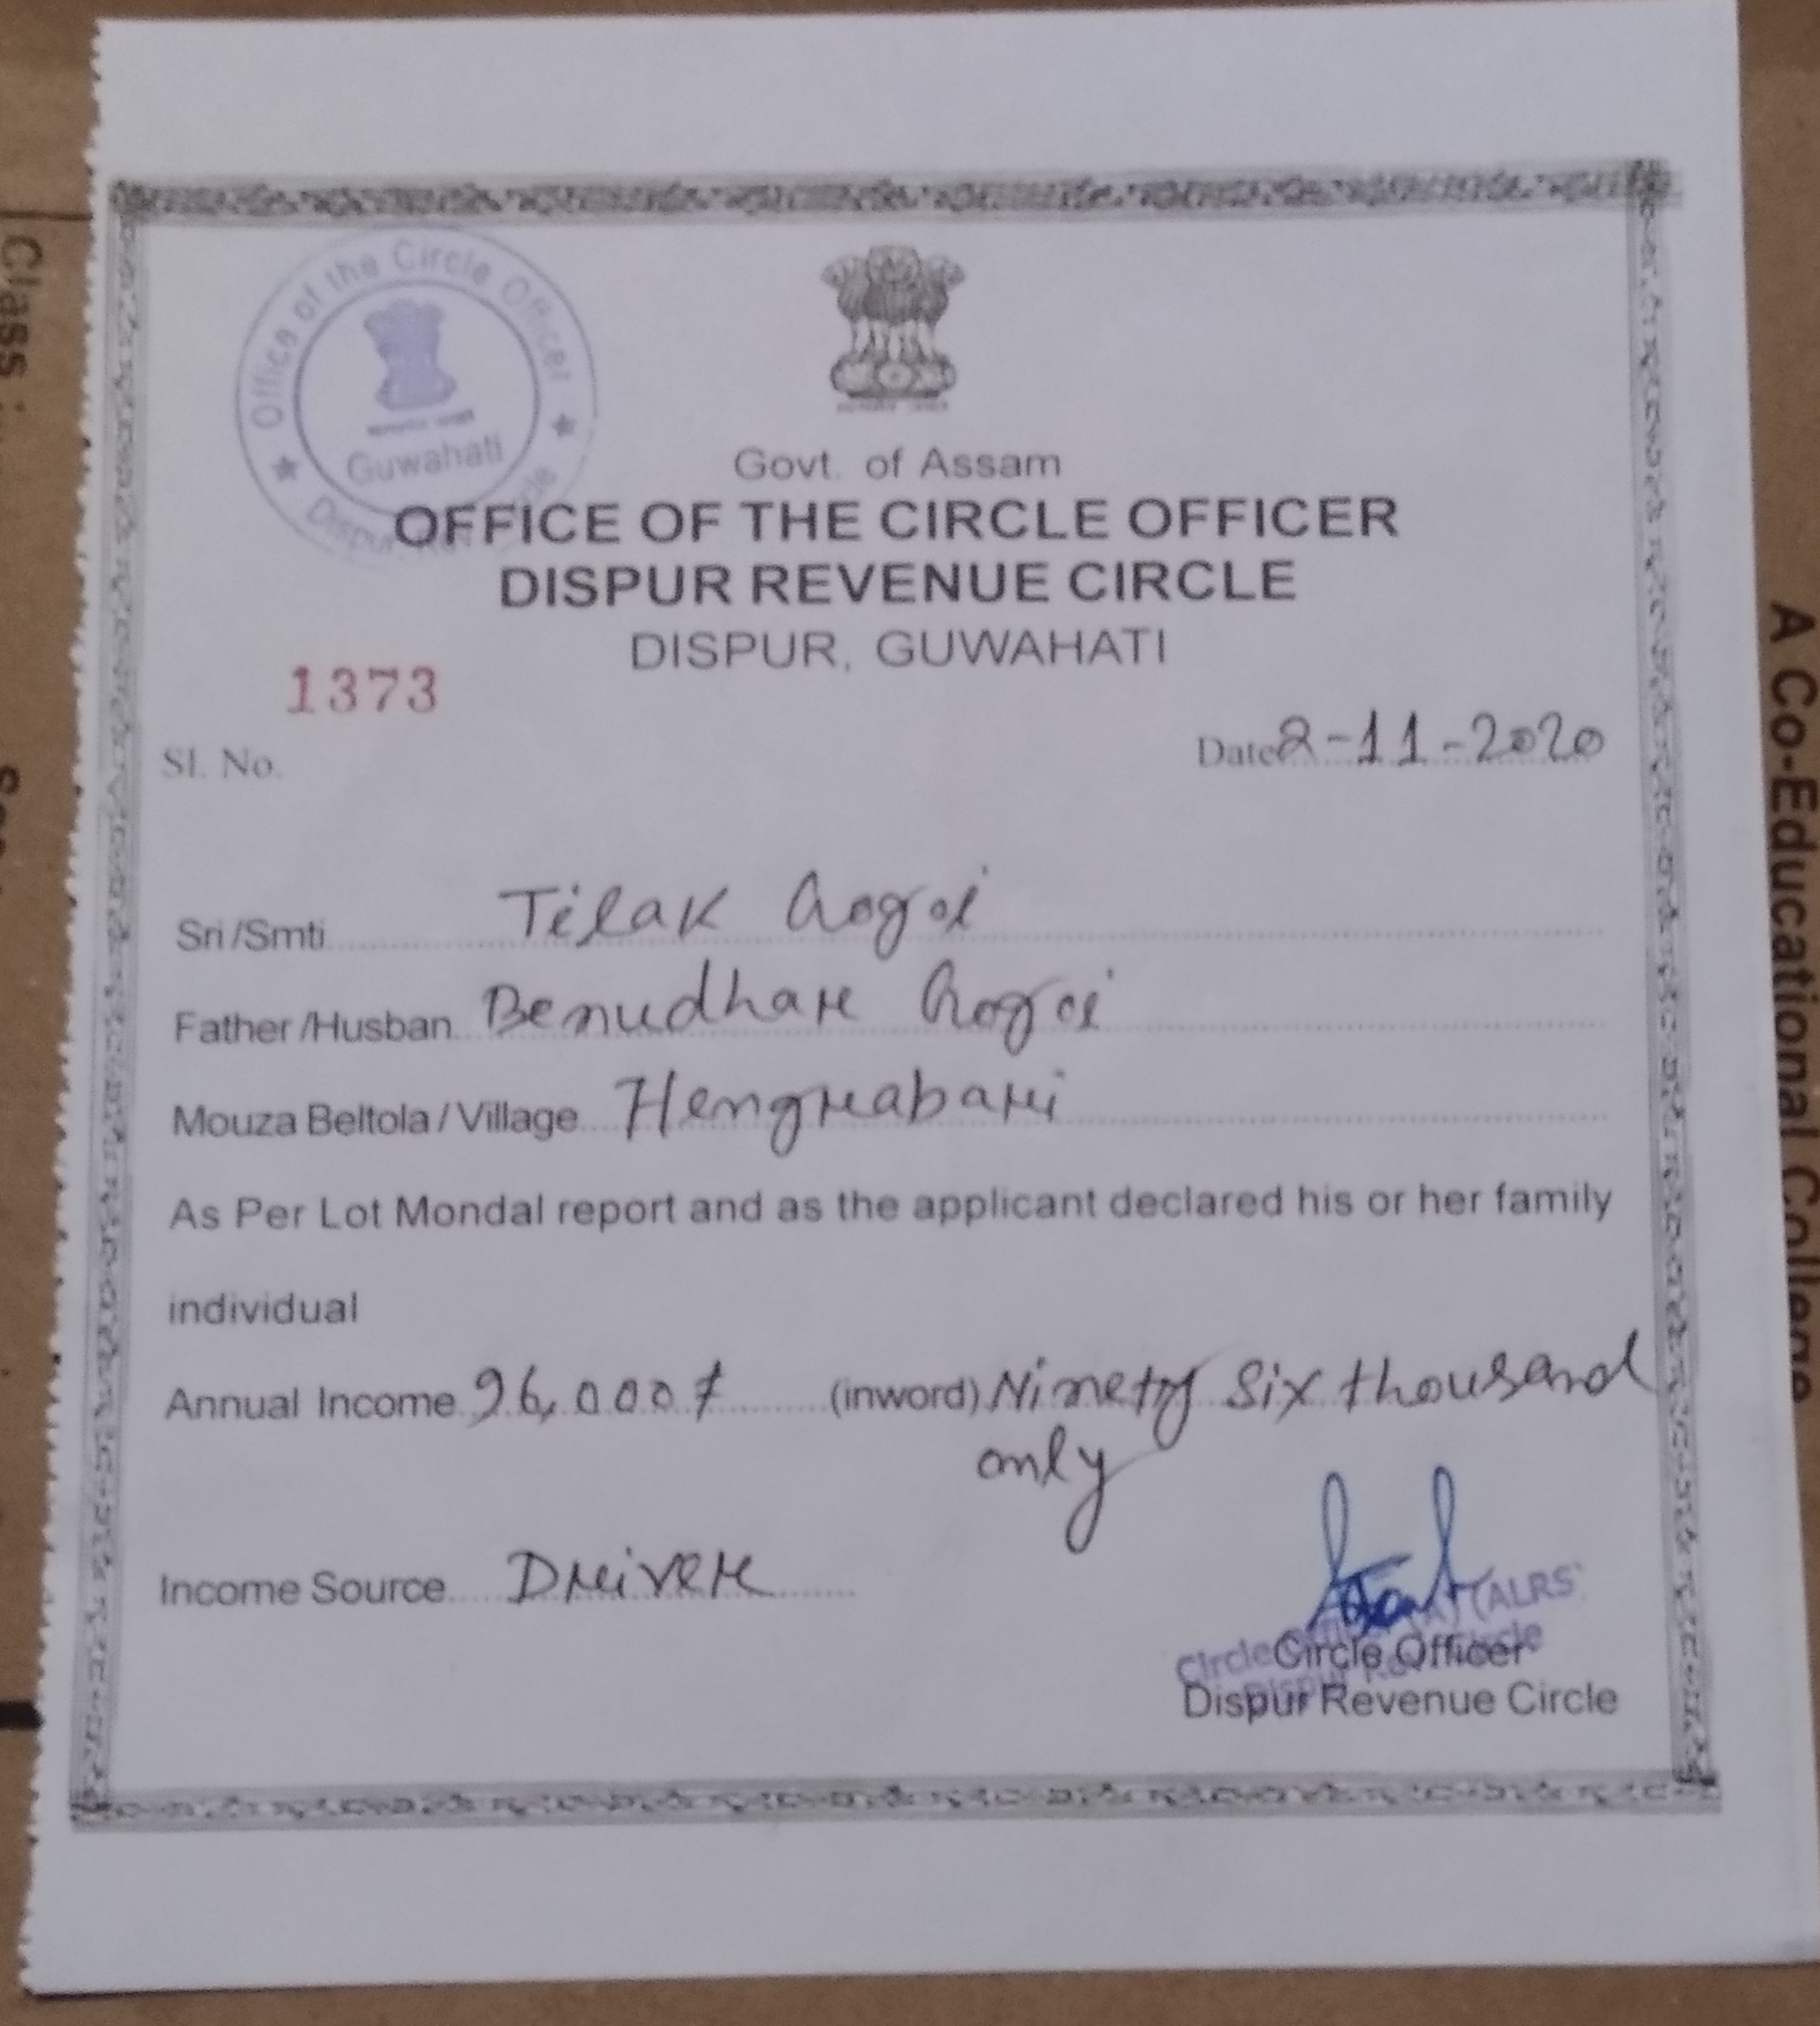 Office of the Circle Officer
Guwahati
Dispur Circle
Govt. of Assam
OFFICE OF THE CIRCLE OFFICER
DISPUR REVENUE CIRCLE
DISPUR, GUWAHATI
1373
Sl. No.
Date 2-11-2020
Sri/Smti Tilak Gogoi
Father /Husban Benudhar Gogoi
Mouza Beltola / Village Hengrabari
As Per Lot Mondal report and as the applicant declared his or her family
individual
Annual Income 96,000/- (inword) Ninety Six thousand
only
Income Source Driver
(ALRS)
Circle Officer
Dispur Revenue Circle
Class :
A Co-Educational College